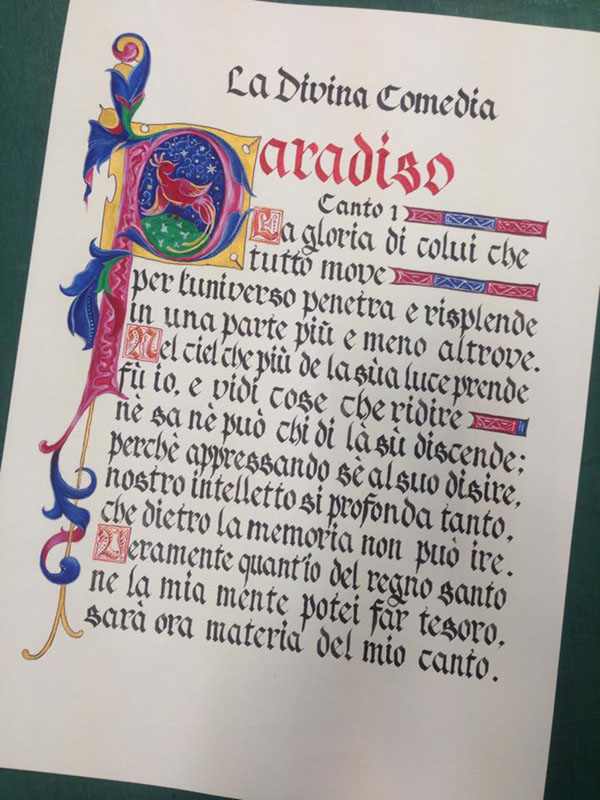 La Divina Comedia
Paradiso
Canto 1
La gloria di colui che
tutto move
per l'universo penetra e risplende
in una parte più e meno altrove.
Nel ciel che più de la sùa luce prende
fù io, e vidi cose che ridire
nè sa nè può chi di là sù discende;
perchè appressando sè al suo disire,
nostro intelletto si profonda tanto,
che dietro la memoria non può ire.
Veramente quant'io del regno santo
ne la mia mente potei far tesoro,
sarà ora materia del mio canto.